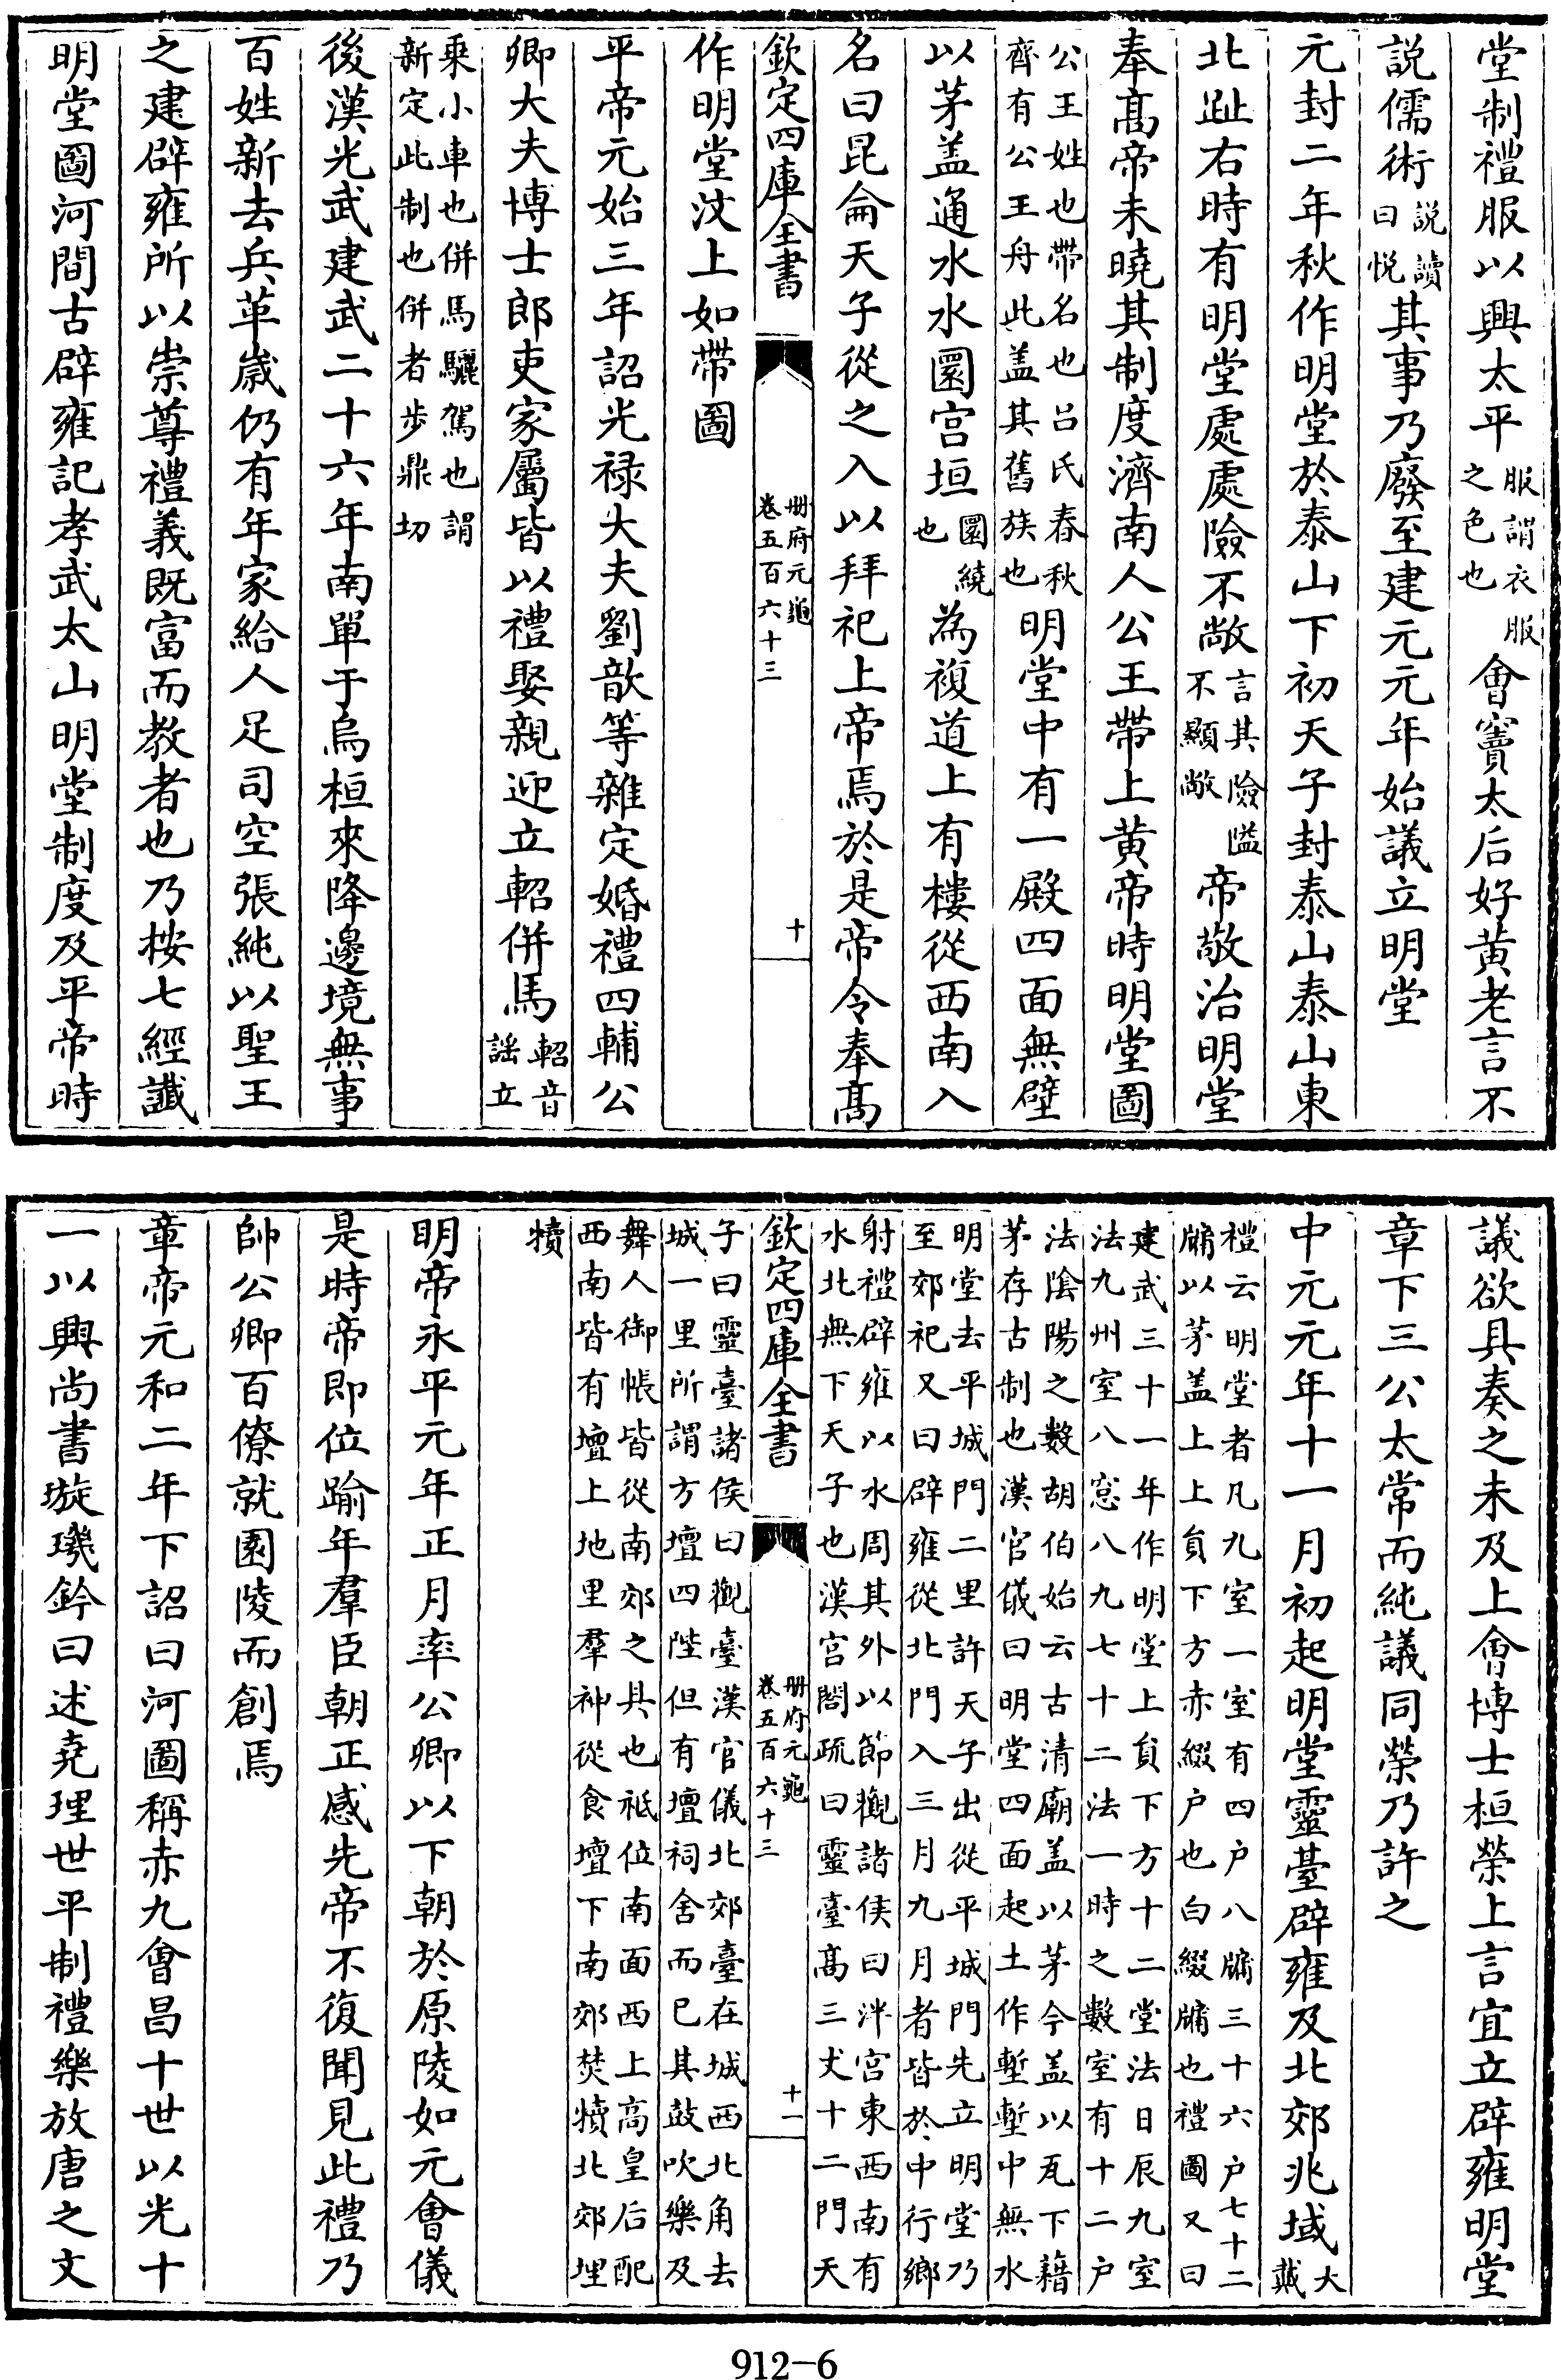 堂制禮服以興太平服謂衣服之色也會竇太后好黄老言不
説儒術説讀曰悦其事乃廢至建元元年始議立明堂
元封二年秋作明堂於泰山下初天子封泰山泰山東
北趾右時有明堂處處險不敞言其險隘不顯敞帝敬治明堂
奉髙帝未曉其制度濟南人公王帶上黄帝時明堂圖
公王姓也帶名也呂氏春秋齊有公王舟此盖其舊族也明堂中有一殿四面無壁
以茅盖通水水圜宫垣圜繞也為複道上有樓從西南入
名曰昆侖天子從之入以拜祀上帝焉於是帝令奉髙
欽定四庫全書
册府元龜
卷五百六十三
十
作明堂汶上如帶圖
平帝元始三年詔光禄大夫劉歆等雜定婚禮四輔公
卿大夫博士郎吏家屬皆以禮娶親迎立軺併馬軺音謡立
乗小車也併馬驪駕也謂新定此制也併者步鼎切
後漢光武建武二十六年南單于烏桓來降邊境無事
百姓新去兵革嵗仍有年家給人足司空張純以聖王
之建辟雍所以崇尊禮義既富而教者也乃按七經讖
明堂圖河間古辟雍記孝武太山明堂制度及平帝時
議欲具奏之未及上會博士桓榮上言宜立辟雍明堂
章下三公太常而純議同榮乃許之
中元元年十一月初起明堂靈臺辟雍及北郊兆域大戴
禮云明堂者凡九室一室有四户八牖三十六户七十二牖以茅盖上上員下方赤綴户也白綴牖也禮圖又曰
建武三十一年作明堂上員下方十二堂法日辰九室法九州室八窓八九七十二法一時之數室有十二户
法陰陽之數胡伯始云古清廟盖以茅今盖以瓦下藉茅存古制也漢官儀曰明堂四面起土作塹塹中無水
明堂去平城門二里許天子出從平城門先立明堂乃至郊祀又曰辟雍從北門入三月九月者皆於中行鄉
射禮辟雍以水周其外以節觀諸侯曰泮宫東西南有水北無下天子也漢宫閣疏曰靈臺髙三丈十二門天
欽定四庫全書
册府元龜
卷五百六十三
十一
子曰靈臺諸侯曰觀臺漢官儀北郊臺在城西北角去城一里所謂方壇四陛但有壇祠舍而已其鼓吹樂及
舞人御帳皆從南郊之具也祗位南面西上高皇后配西南皆有壇上地里羣神從食壇下南郊焚犢北郊埋
犢
明帝永平元年正月率公卿以下朝於原陵如元會儀
是時帝即位踰年羣臣朝正感先帝不復聞見此禮乃
帥公卿百僚就園陵而創焉
章帝元和二年下詔曰河圖稱赤九會昌十世以光十
一以興尚書璇璣鈐曰述堯理世平制禮樂放唐之文
912-6